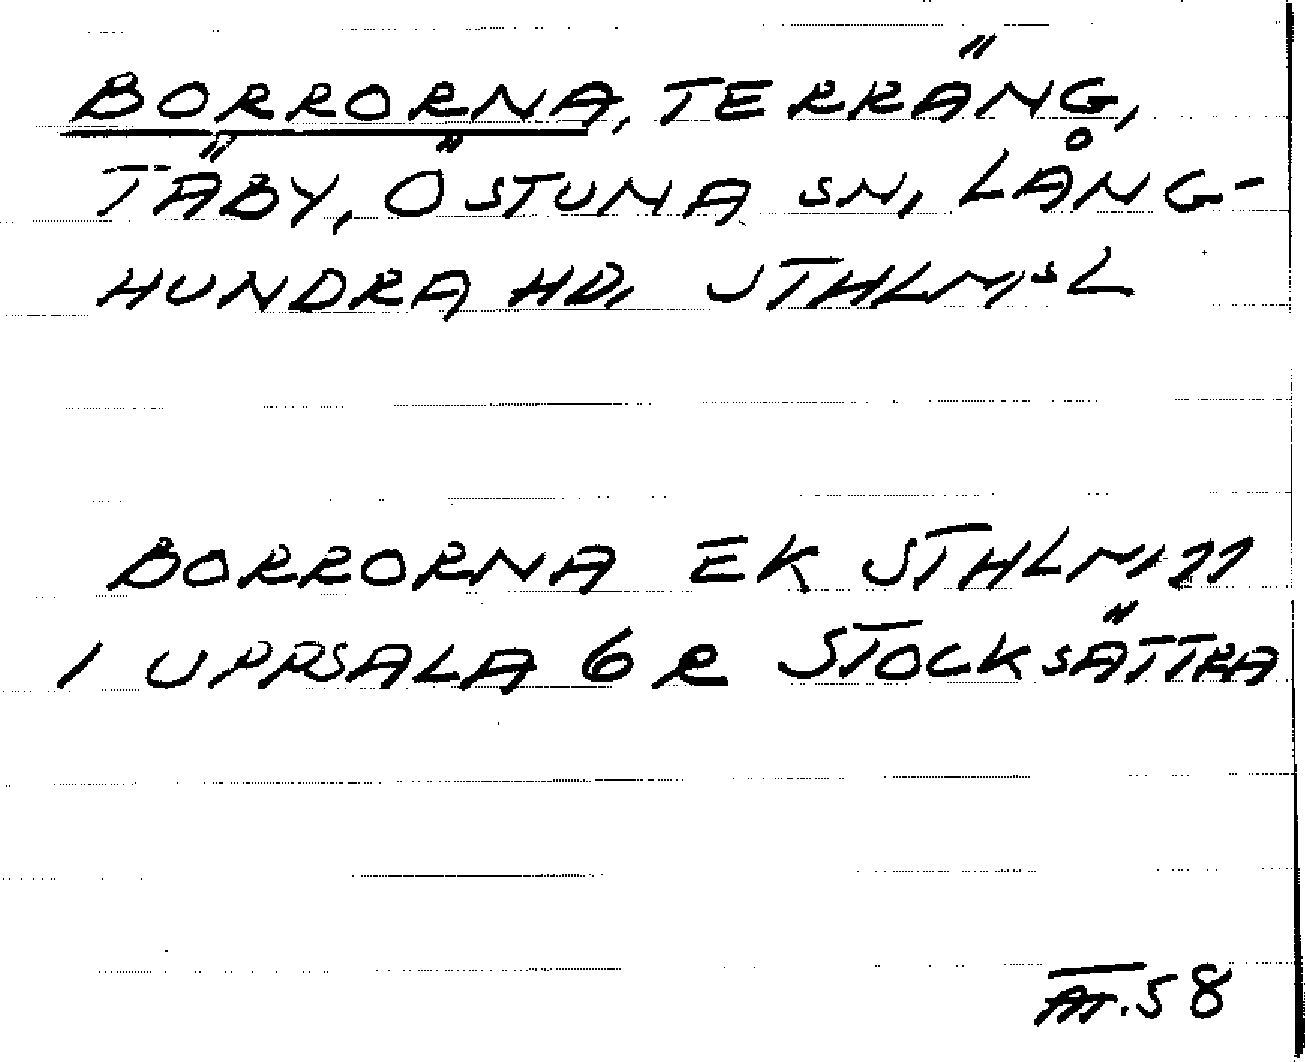 BORRORNA, TERRÄNG,
TÄBY, ÖSTUNA SN, LÅNG-
HUNDRA HD, STHLM,S L
BORRORNA EK STHLM, 77
1 UPPSALA 6 R STOCKSÄTTRA
58